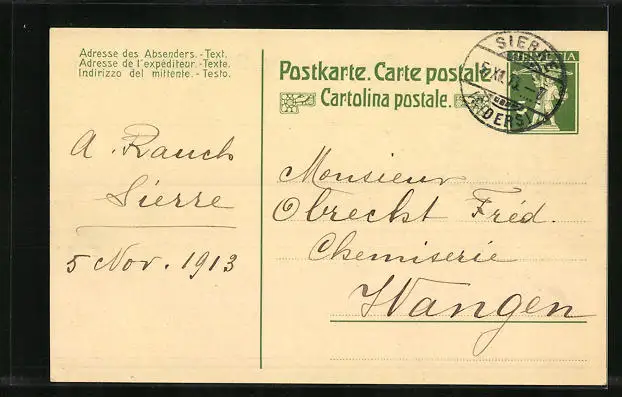 Adresse des Absenders. - Text.
Adresse de l'expéditeur. - Texte.
Indirizzo del mittente. - Testo.
A. Rauch
Sierre
5 Nov. 1913
Postkarte. Carte postale.
Cartolina postale.
SIERRE
HELVETIA
(SIDERS)
Monsieur
Obrecht Fréd.
Chemiserie
Wangen